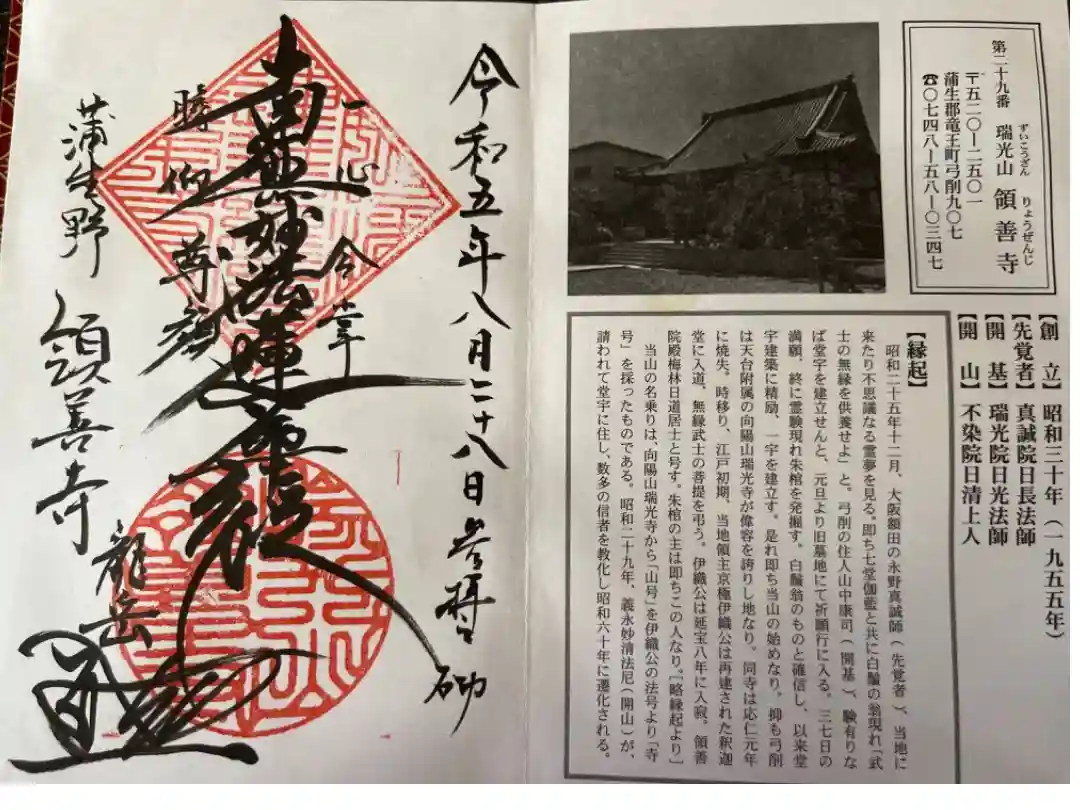 第二十九番 瑞光山 領善寺
ずいこうざん りょうぜんじ
〒五二〇ー二五〇一
蒲生郡竜王町弓削九〇七
☎〇七四八ー五八ー〇三四七
【創　立】昭和三十年(一九五五年)
【先覚者】真誠院日長法師
【開　基】瑞光院日光法師
【開　山】不染院日清上人
【縁起】
昭和二十五年十二月、大阪額田の永野真誠師(先覚者)、当地に
来たり不思議なる霊夢を見る。即ち七堂伽藍と共に白髯の翁現れ「武
士の無縁を供養せよ」と。弓削の住人山中康司(開基)、験有りな
ば堂宇を建立せんと、元旦より旧墓地にて祈願行に入る。三七日の
満願、終に霊験現れ朱棺を発掘す。白髯翁のものと確信し、以来堂
宇建築に精励、一宇を建立す。是れ即ち当山の始めなり。抑も弓削
は天台附属の向陽山瑞光寺が偉容を誇りし地なり。同寺は応仁元年
に焼失。時移り、江戸初期、当地領主京極伊織公は再建された釈迦
堂に入道、無縁武士の菩提を弔う。伊織公は延宝八年に入寂。領善
院殿梅林日道居士と号す。朱棺の主は即ちこの人なり。「略縁起より」
当山の名乗りは、向陽山瑞光寺から「山号」を伊織公の法号より「寺
号」を採ったものである。昭和二十九年、義永妙清法尼(開山)が、
請われて堂宇に住し、数多の信者を教化し昭和六十年に遷化される。
令和五年八月二十八日参拝砌
一心合掌
南無妙法蓮華経
瞻仰尊顔
蒲生野 領善寺
龍岳